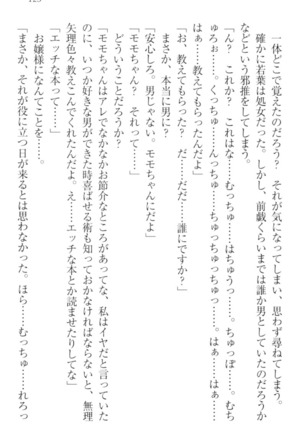 123
一体どこで覚えたのだろう？　それが気になってしまい、思わず尋ねてしまう。
確かに若葉は処女だった。しかし、前戯くらいまでは誰か男としていたのだろうか
などという邪推をしてしまう。
「ん？　これか？　これはな……むっちゅ……はちゅうっ……。ちゅっぽ……。むち
ゅろぉ……。くっちゅ……んっちゅ……ちゅっちゅっちゅっ……。はぁ……はぁ……
はぁ……教えてもらったんだよ」
「お、教えてもらった？　だ……だだ……誰にですか？」
「まさか、本当に男に？」
「安心しろ。男じゃない。モモちゃんにだよ」
「モモちゃん？　それって……」
どういうことだろうか？
「モモちゃんはアレでなかなかお節介なところがあってな、私はイヤだと言っていた
のに、いつか好きな男ができた時喜ばせる術も知っておかなければならないと、無理
矢理色々教えこんでくれたんだよ。え……エッチな本とか読ませたりしてな」
「エッチな本って……」
お嬢様になんてことを……。
「まさか、それが役に立つ日が来るとは思わなかった。ほら……むっちゅ……れろっ